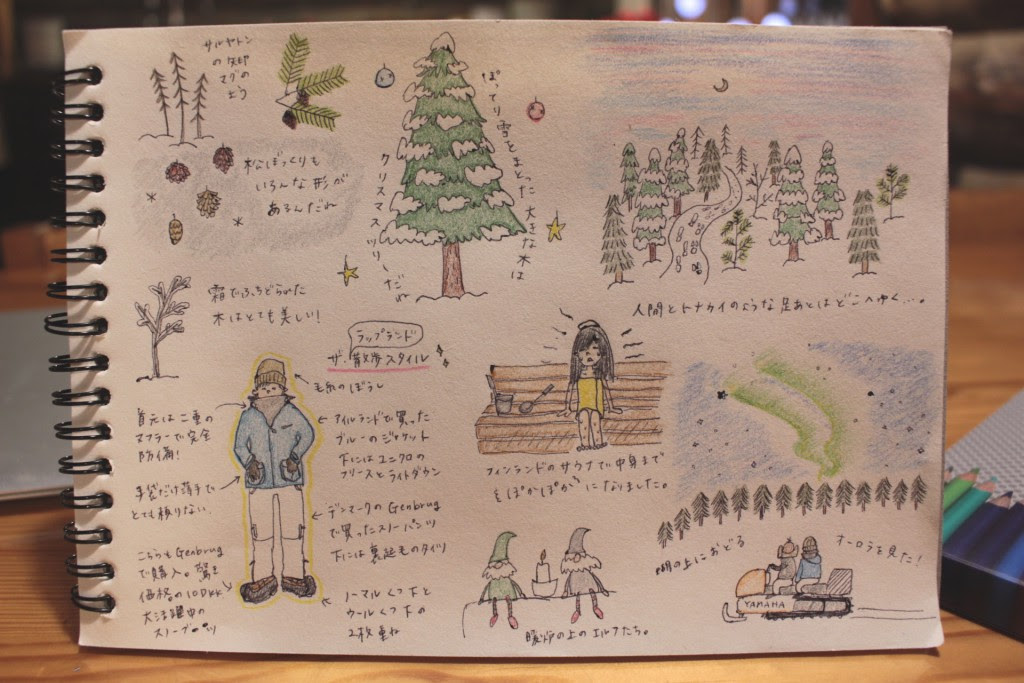 サルヤトン
の矢印
マグの
よう
松ぼっくりも
いろんな形が
あるんだね
ぽってり雪をまとった大きな木は
クリスマスツリーだね
霜でふちどられた
木はとても美しい!
人間とトナカイのような足あとはどこへゆく…。
ラップランド
ザ・散歩スタイル
毛糸のぼうし
首元は二重の
マフラーで完全
防備!
手袋だけ薄手で
とても頼りない
こちらもGenbrug
で購入。驚き
価格の10DKK
大活躍中の
スノーブーツ
アイルランドで買った
ブルーのジャケット
下にはユニクロの
フリースとライトダウン
デンマークのGenbrug
で買ったスノーパンツ
下には裏起毛のタイツ
ノーマルくつ下と
ウールくつ下の
2枚重ね
フィンランドのサウナで中身まで
ぽかぽかになりました。
暖炉の上のエルフたち。
の上におどる
オーロラを見た!
YAMAHA